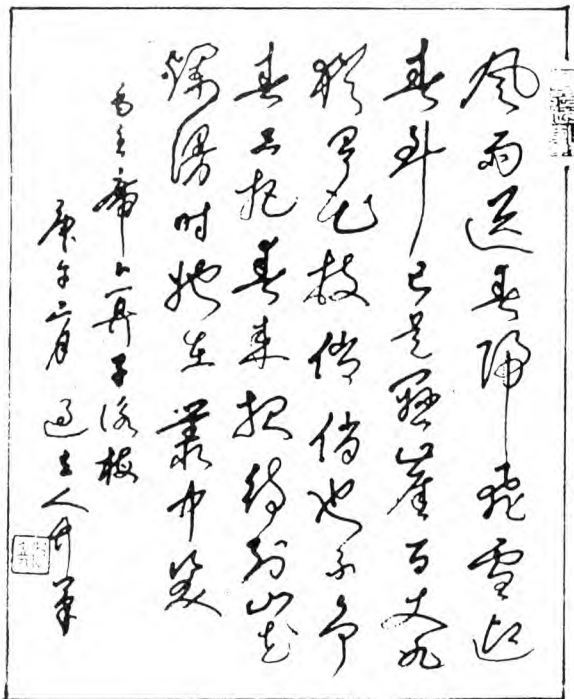 风雨送春歸飛雪迎
春到已是懸崖百丈冰
猶有花枝俏俏也不争
春只把春来报待到山花
爛漫时她在叢中笑
毛主席卜算子咏梅
庚午月人